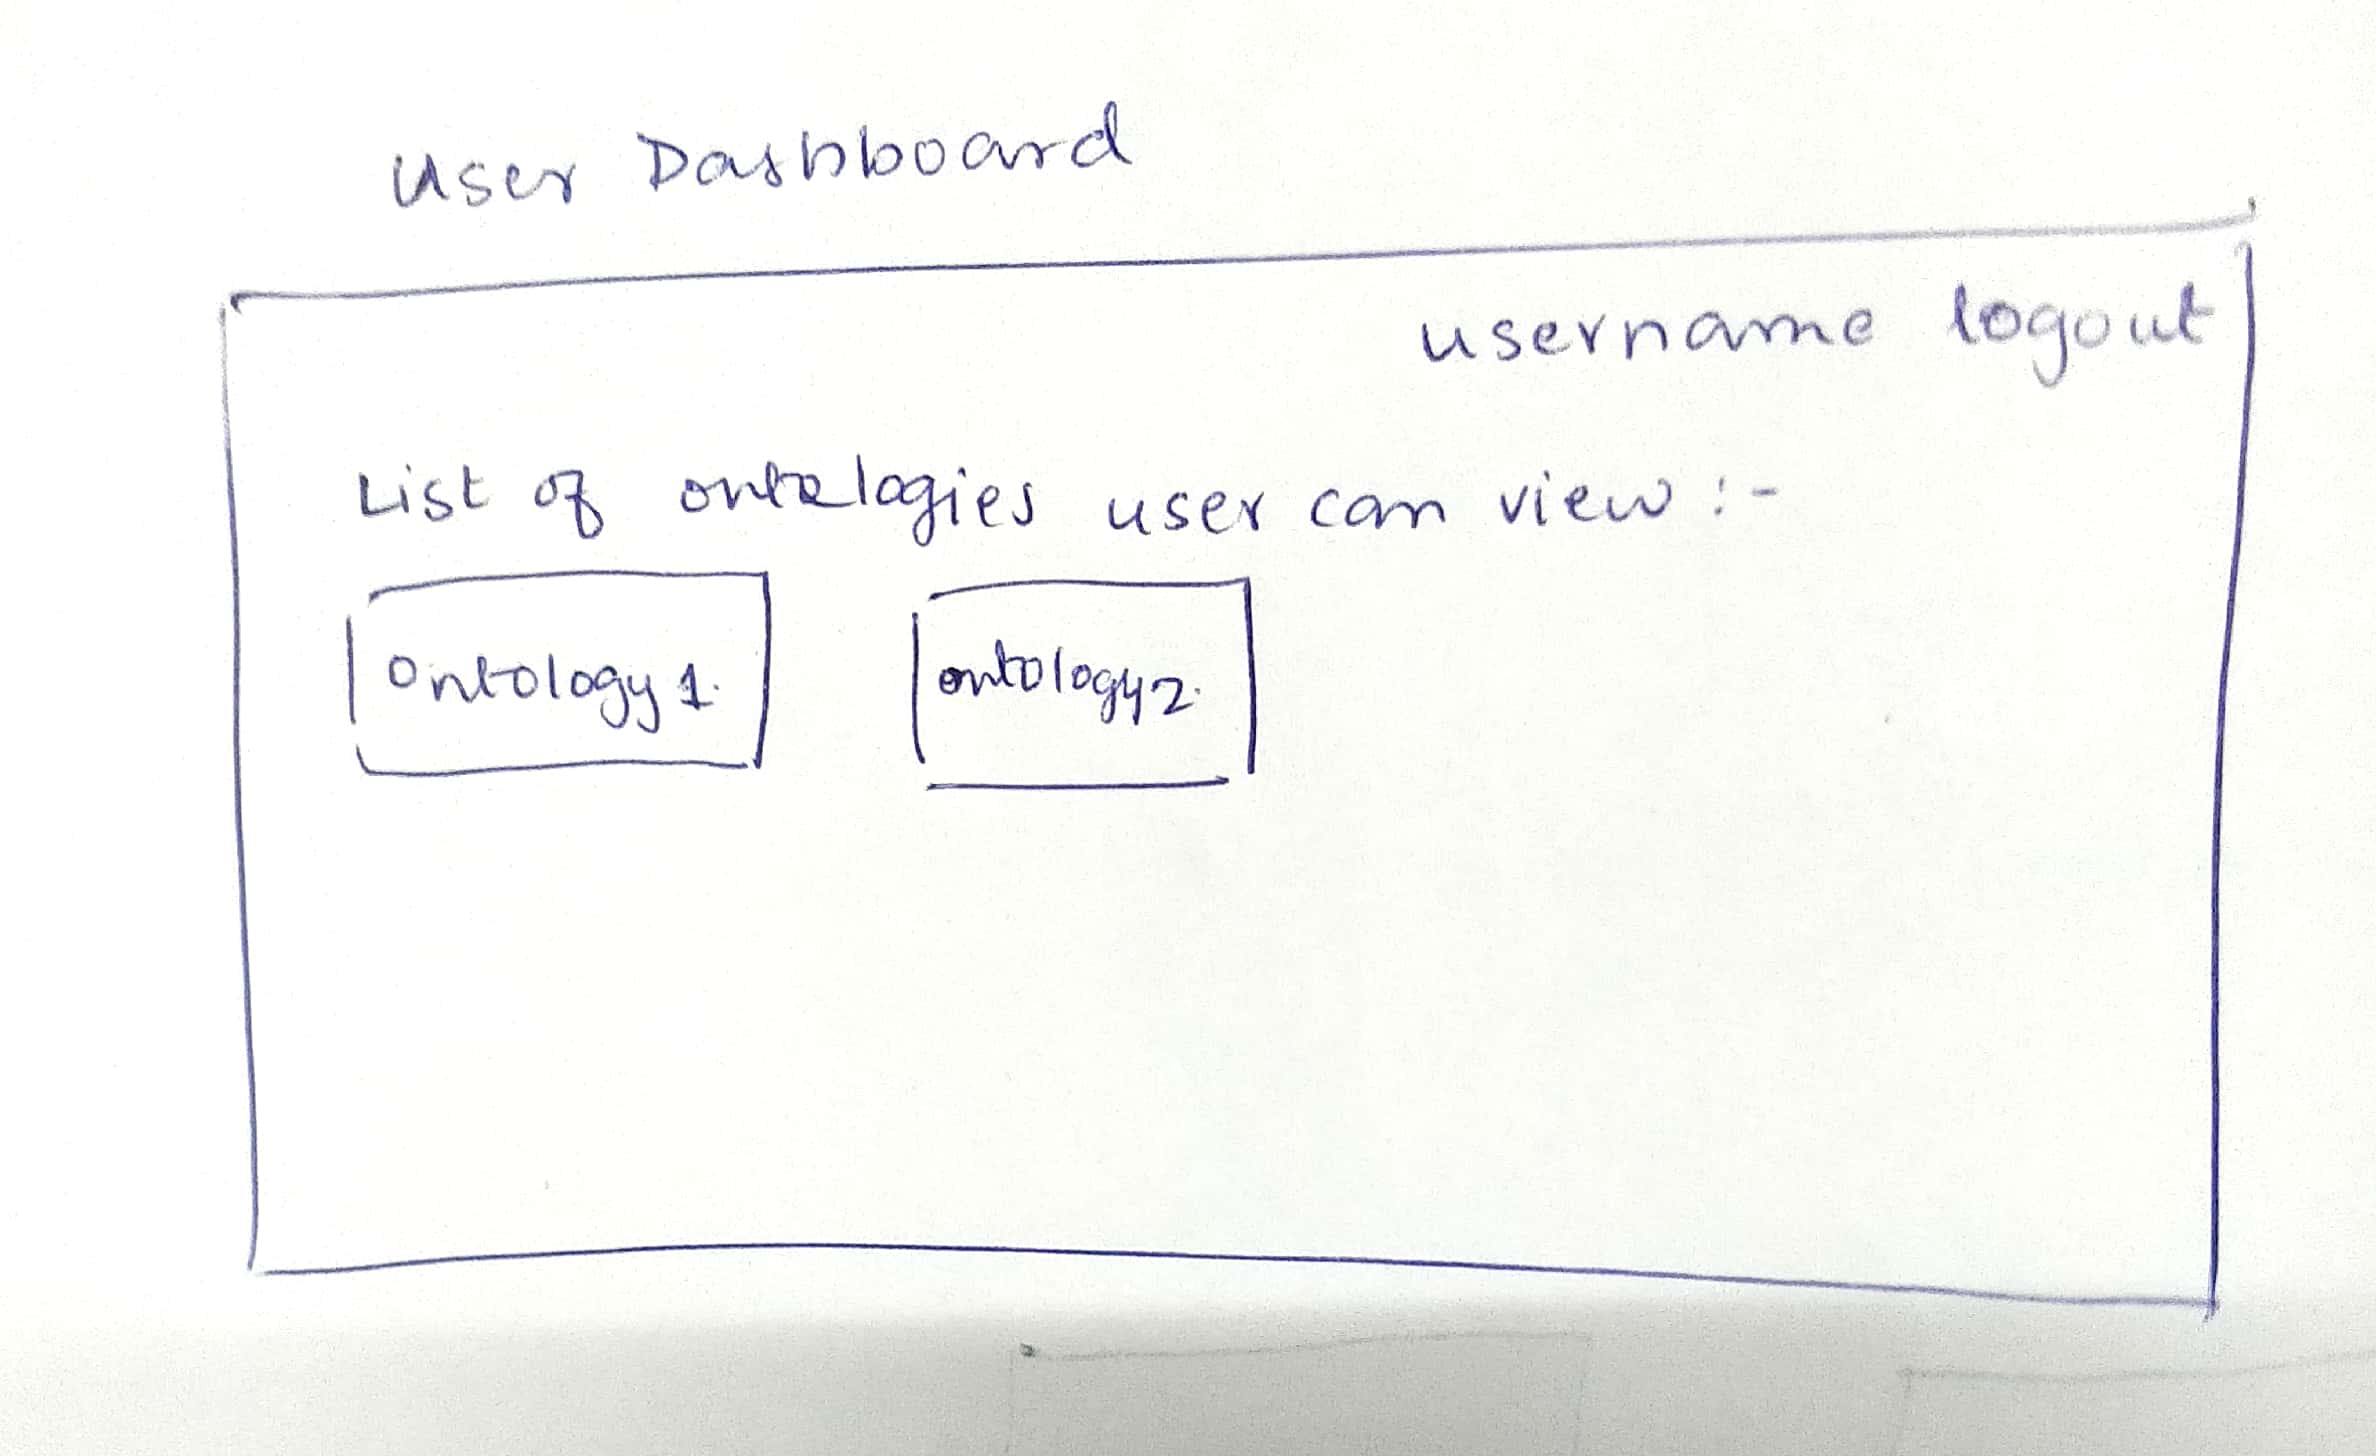 User Dashboard
username logout
List of ontologies user can view :-
Ontology 1.
ontology 2.